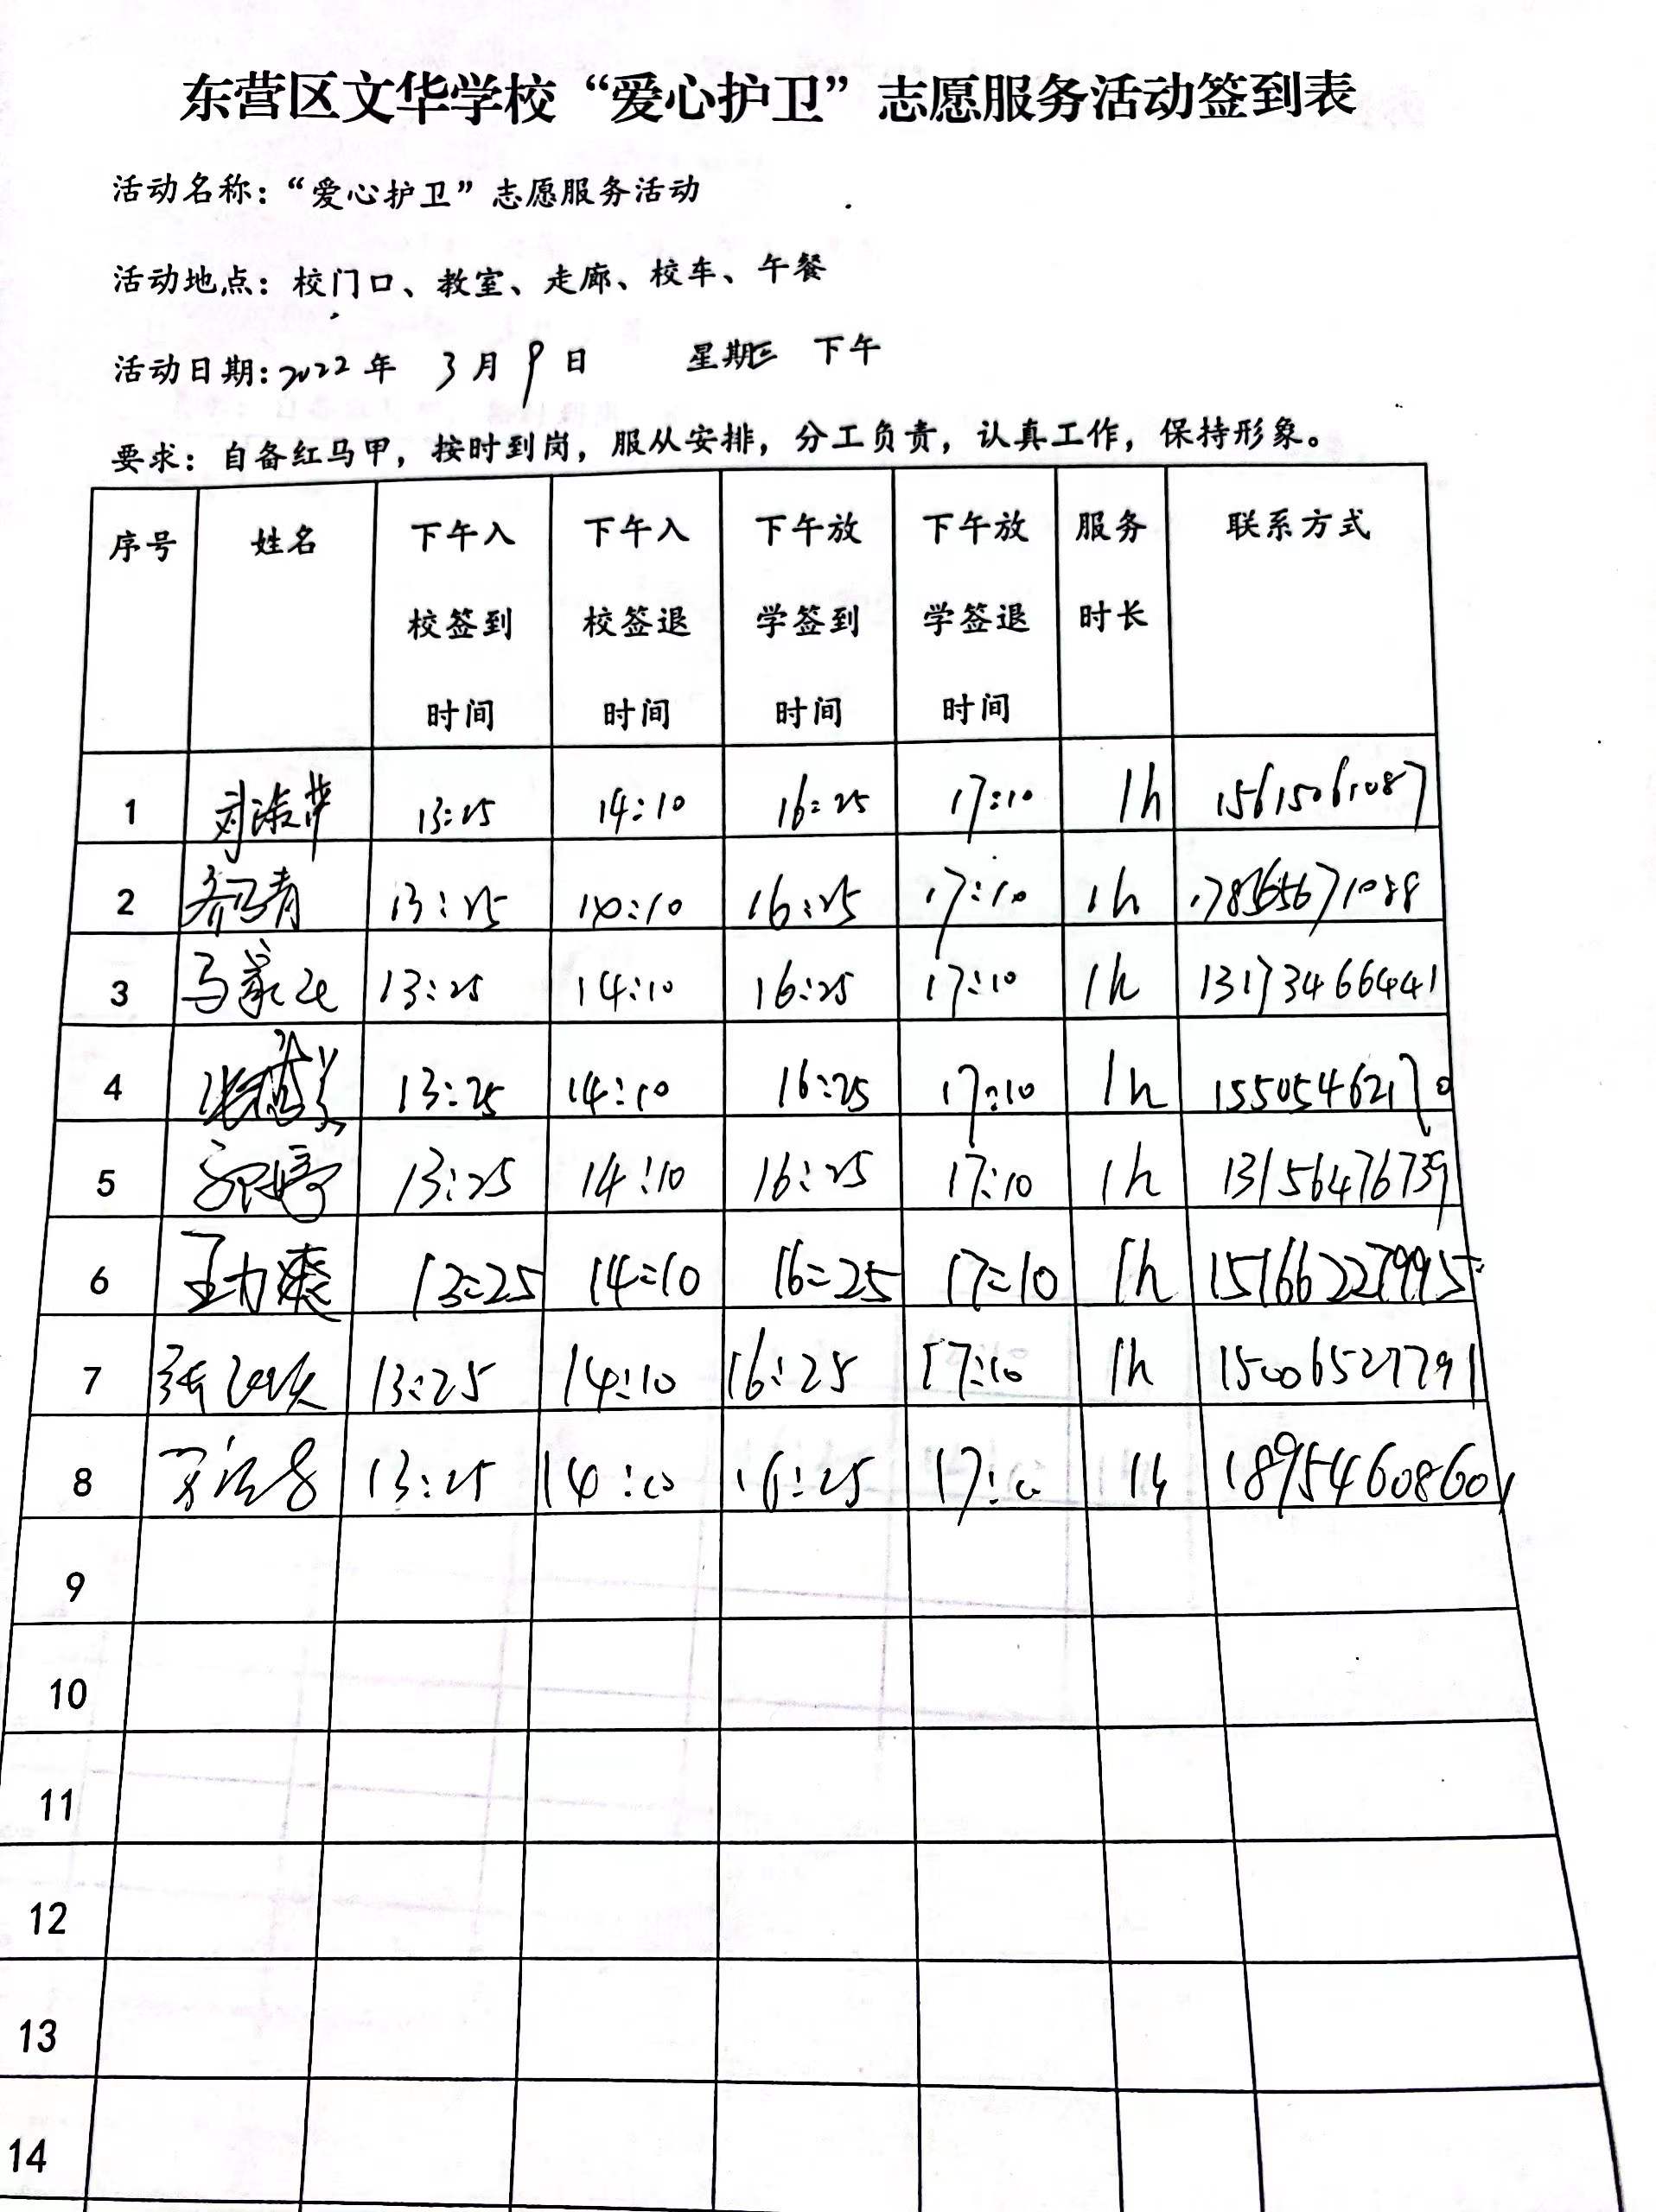 东营区文华学校“爱心护卫”志愿服务活动签到表
活动名称：“爱心护卫”志愿服务活动
活动地点：校门口、教室、走廊、校车、午餐
活动日期：2022年 3月9日 星期三 下午
要求：自备红马甲，按时到岗，服从安排，分工负责，认真工作，保持形象。
序号 姓名 下午入校签到时间 下午入校签退时间 下午放学签到时间 下午放学签退时间 服务时长 联系方式
1 13:25 14:10 16:25 17:10 1h 15615061087
2 13:25 14:10 16:25 17:10 1h
3 13:25 14:10 16:25 17:10 1h 13173466441
4 13:25 14:10 16:25 17:10 1h 15505462170
5 13:25 14:10 16:25 17:10 1h 13156476739
6 王力爽 13:25 14:10 16:25 17:10 1h
7 13:25 14:10 16:25 17:10 1h 15006527791
8 13:25 14:10 16:25 17:10 1h 18954608601
9
10
11
12
13
14